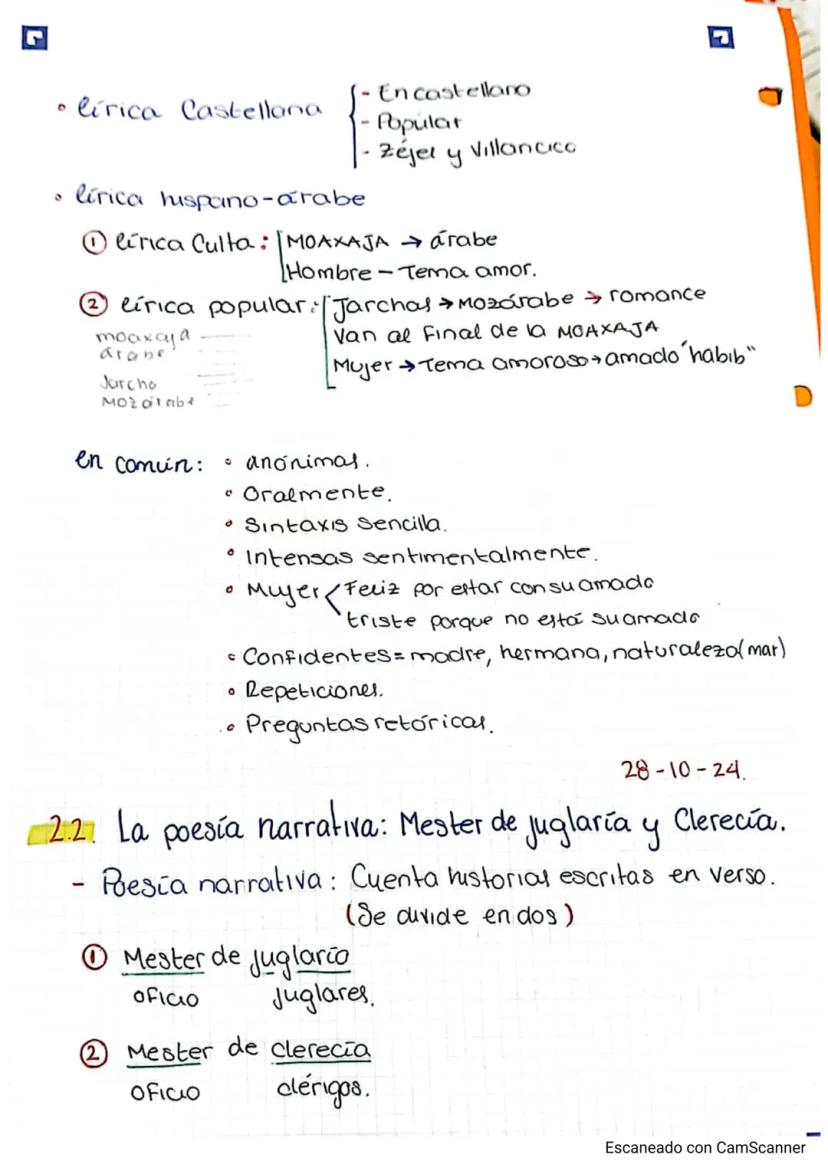 • lírica Castellana
- En castellano
- Popular
- Zéjel y Villancico
• lírica hispano-árabe
① lírica Culta: MOAXAJA → árabe
Hombre - Tema amor.
② lírica popular: Jarchas → Mozárabe → romance
Van al final de la MOAXAJA
Mujer → Tema amoroso → amado "habib"
moaxaja
árabe
Jarcha
Mozárabe
en común: • anónimas.
• Oralmente.
• Sintaxis sencilla.
• Intensas sentimentalmente.
• Mujer < Feliz por estar con su amado
triste porque no está su amado
• Confidentes = madre, hermana, naturaleza (mar)
• Repeticiones.
• Preguntas retóricas.
28-10-24.
2.2. La poesía narrativa: Mester de juglaría y Clerecía.
- Poesía narrativa: Cuenta historias escritas en verso.
(Se divide en dos)
① Mester de juglaría
oficio juglares.
② Mester de clerecía
oficio clérigos.
Escaneado con CamScanner